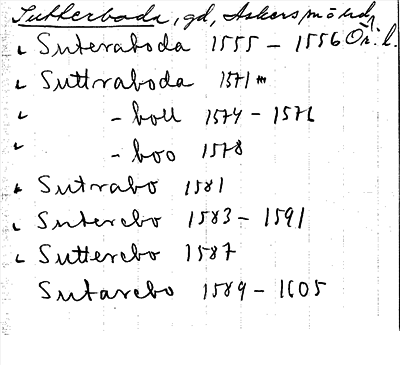 Sutterboda, gd, Askers sn, Ör. l.
Suteraboda 1555 – 1556
Suttraboda 1571 m
- boll 1574 – 1576
- boo 1578
Sutrabo 1581
Suterebo 1583 – 1591
Sutterebo 1587
Sutarebo 1589 – 1605